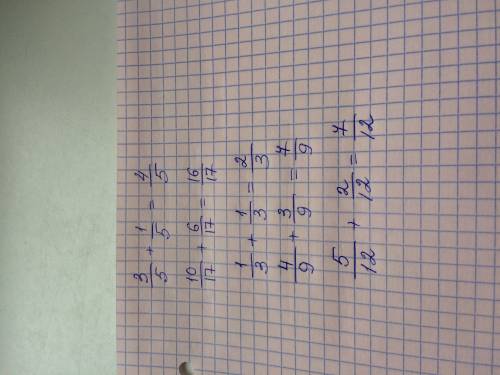 3/5 + 1/5 = 4/5
10/17 + 6/17 = 16/17
1/3 + 1/3 = 2/3
4/9 + 3/9 = 7/9
5/12 + 2/12 = 7/12